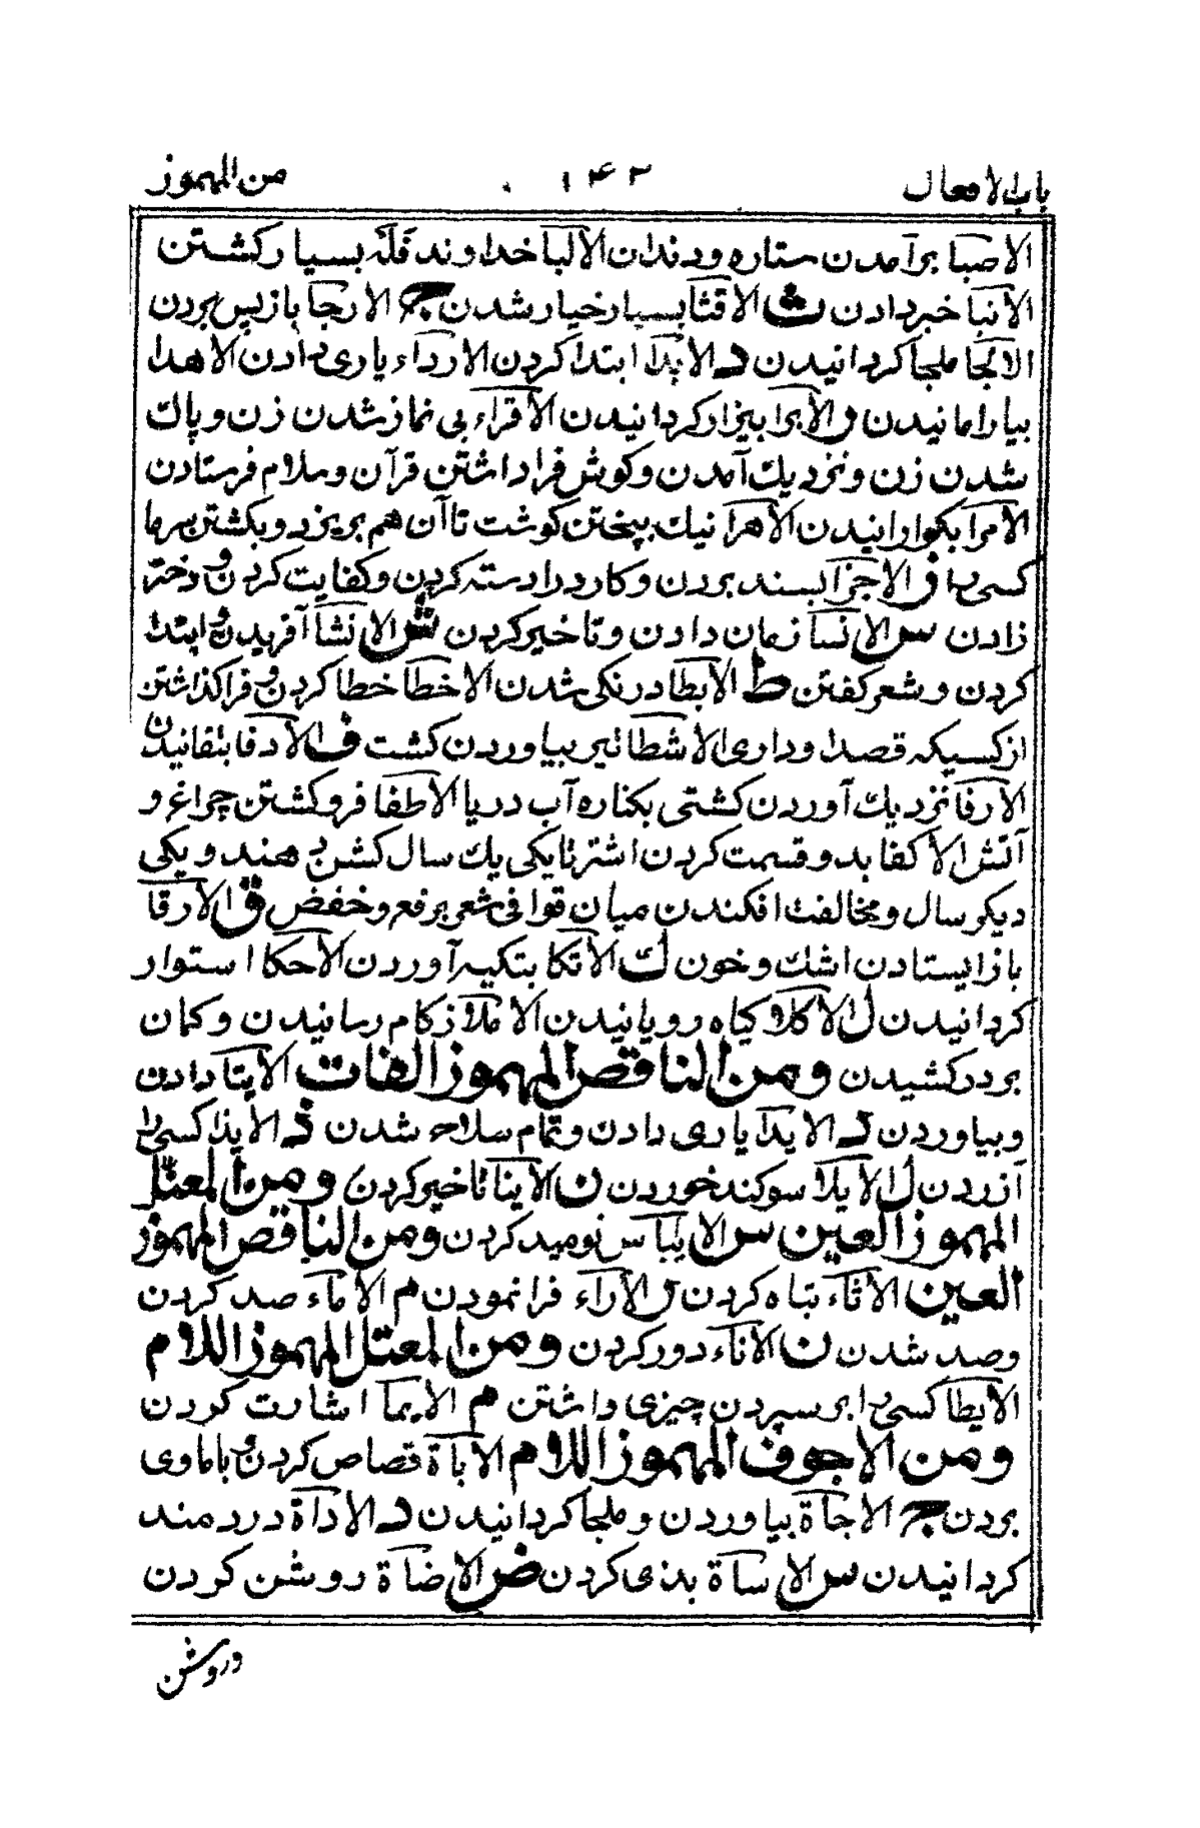 باب الافعال ۱۴۲ من المهموز
الاصبا برآمدن ستاره و دندان الالبا خداوند فله بسیار کشتن
الانبا خبر دادن ث الاقثا بسیار خیار شدن ج الارجا باز پس بردن
الالجا ملجا کردانیدن د الابدا ابتدا کردن الارداء یاری دادن الاهدا
بیارامانیدن ر الابرا بیزار کردانیدن الاقراء بی نماز شدن زن و پاک
شدن زن و نزدیک آمدن و کوش فرا داشتن قرآن و سلام فرستادن
الامرا بکوارانیدن الاهرا نیک بپختن کوشت تا آن هم بریزد و بکشتن سرما
کسی را ز الاجزا بسند بردن و کارد را دسته کردن و کفایت کردن و دختر
زادن س الانسا زمان دادن و تاخیر کردن ش الانشا آفریدن و ابتدا
کردن و شعر کفتن ط الابطا درنکی شدن الاخطا خطا کردن و فرا کذاشتن
از کسیکه قصد او داری الاشطا تیر بیاوردن کشت ف الادفا بتفانیدن
الارفا نزدیک آوردن کشتی بکناره آب دریا الاطفا فرو کشتن چراغ و
آتش الاکفا بد و قسمت کردن اشتر تا یکی یک سال کشن دهند و یکی
دیکر سال و مخالفت افکندن میان قوافی شعر برفع و خفض ق الارقا
باز ایستادن اشک و خون ک الاتکا بتکیه آوردن الاحکا استوار
کردانیدن ل الاکلا کیاه رویانیدن الاملا زکام رسانیدن و کمان
بردر کشیدن ومن الناقص المهموز الفات الایتا دادن
و بیاوردن د الایدا یاری دادن و تمام سلاح شدن ذ الایذا کسی را
آزردن ل الایلا سوکند خوردن ن الاینا تاخیر کردن ومن المعتل
المهموز العین س الایباس نومید کردن ومن الناقص المهموز
العین الاثاء تباه کردن ر الاراء فرا نمودن م الاماء صد کردن
و صد شدن ن الاناء دور کردن ومن المعتل المهموز اللام
الایطا کسی را بر سپردن چیزی داشتن م الایما اشارت کردن
ومن الاجوف المهموز اللام الاباة قصاص کردن و باماوی
بردن ج الاجاة بیاوردن و ملجا کردانیدن د الاداة دردمند
کردانیدن س الاساة بدی کردن ض الاضاة روشن کردن
و روشن